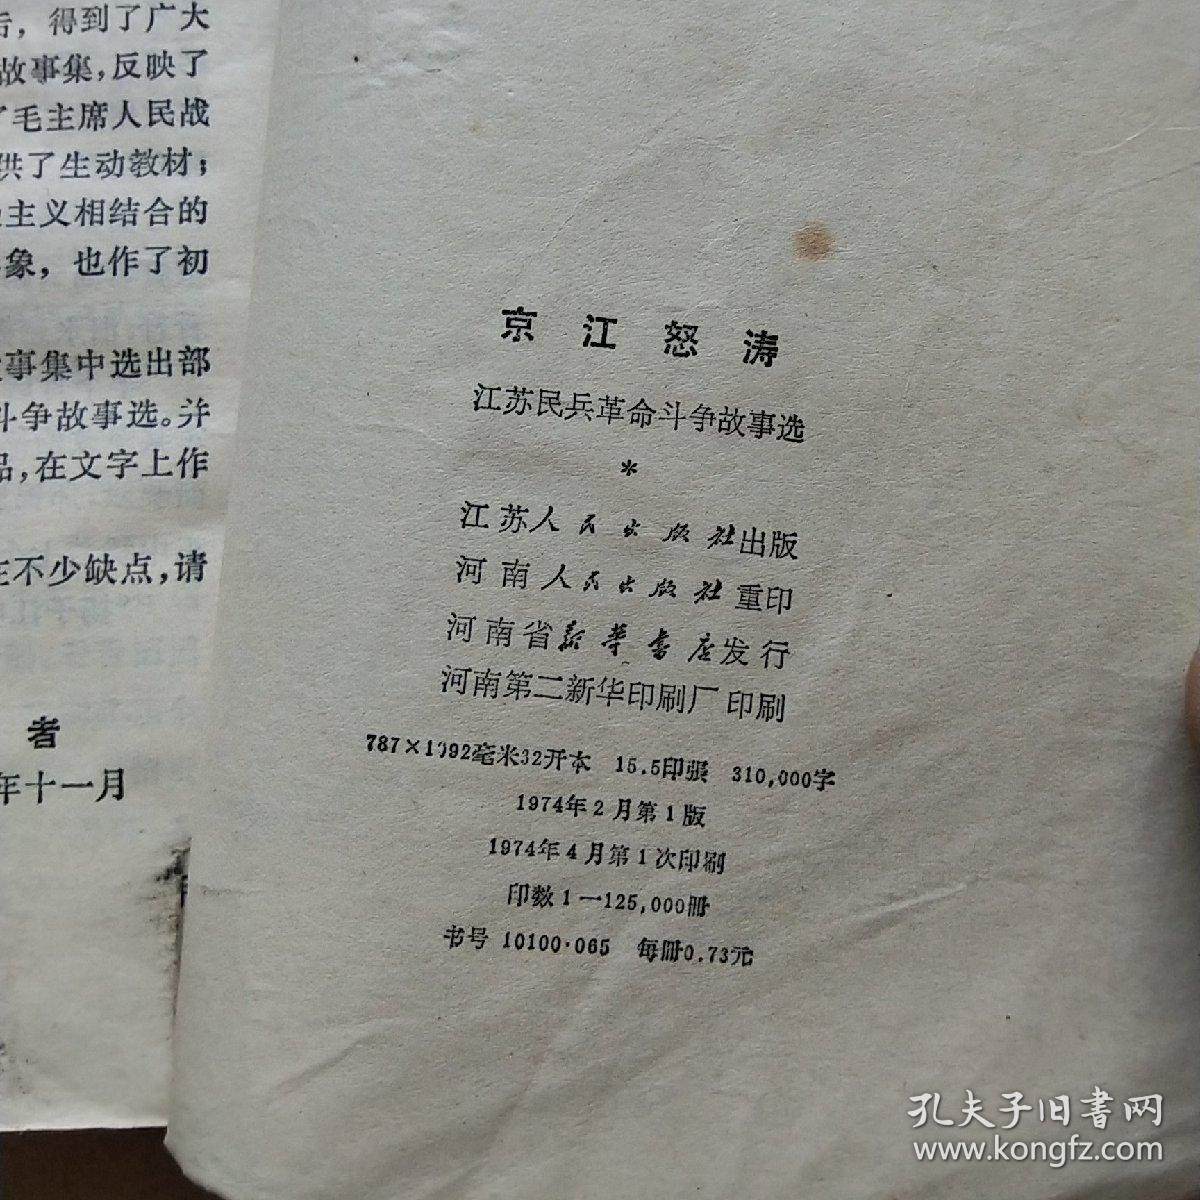 后，得到了广大
故事集，反映了
了毛主席人民战
供了生动教材；
主义相结合的
象，也作了初
事集中选出部
斗争故事选。并
品，在文字上作
在不少缺点，请
者
年十一月
京江怒涛
江苏民兵革命斗争故事选
*
江苏人民出版社出版
河南人民出版社重印
河南省新华书店发行
河南第二新华印刷厂印刷
787×1092毫米32开本 15.5印張 310,000字
1974年2月第1版
1974年4月第1次印刷
印数1—125,000册
书号 10100·065 每册0.73元
孔夫子旧書网
www.kongfz.com